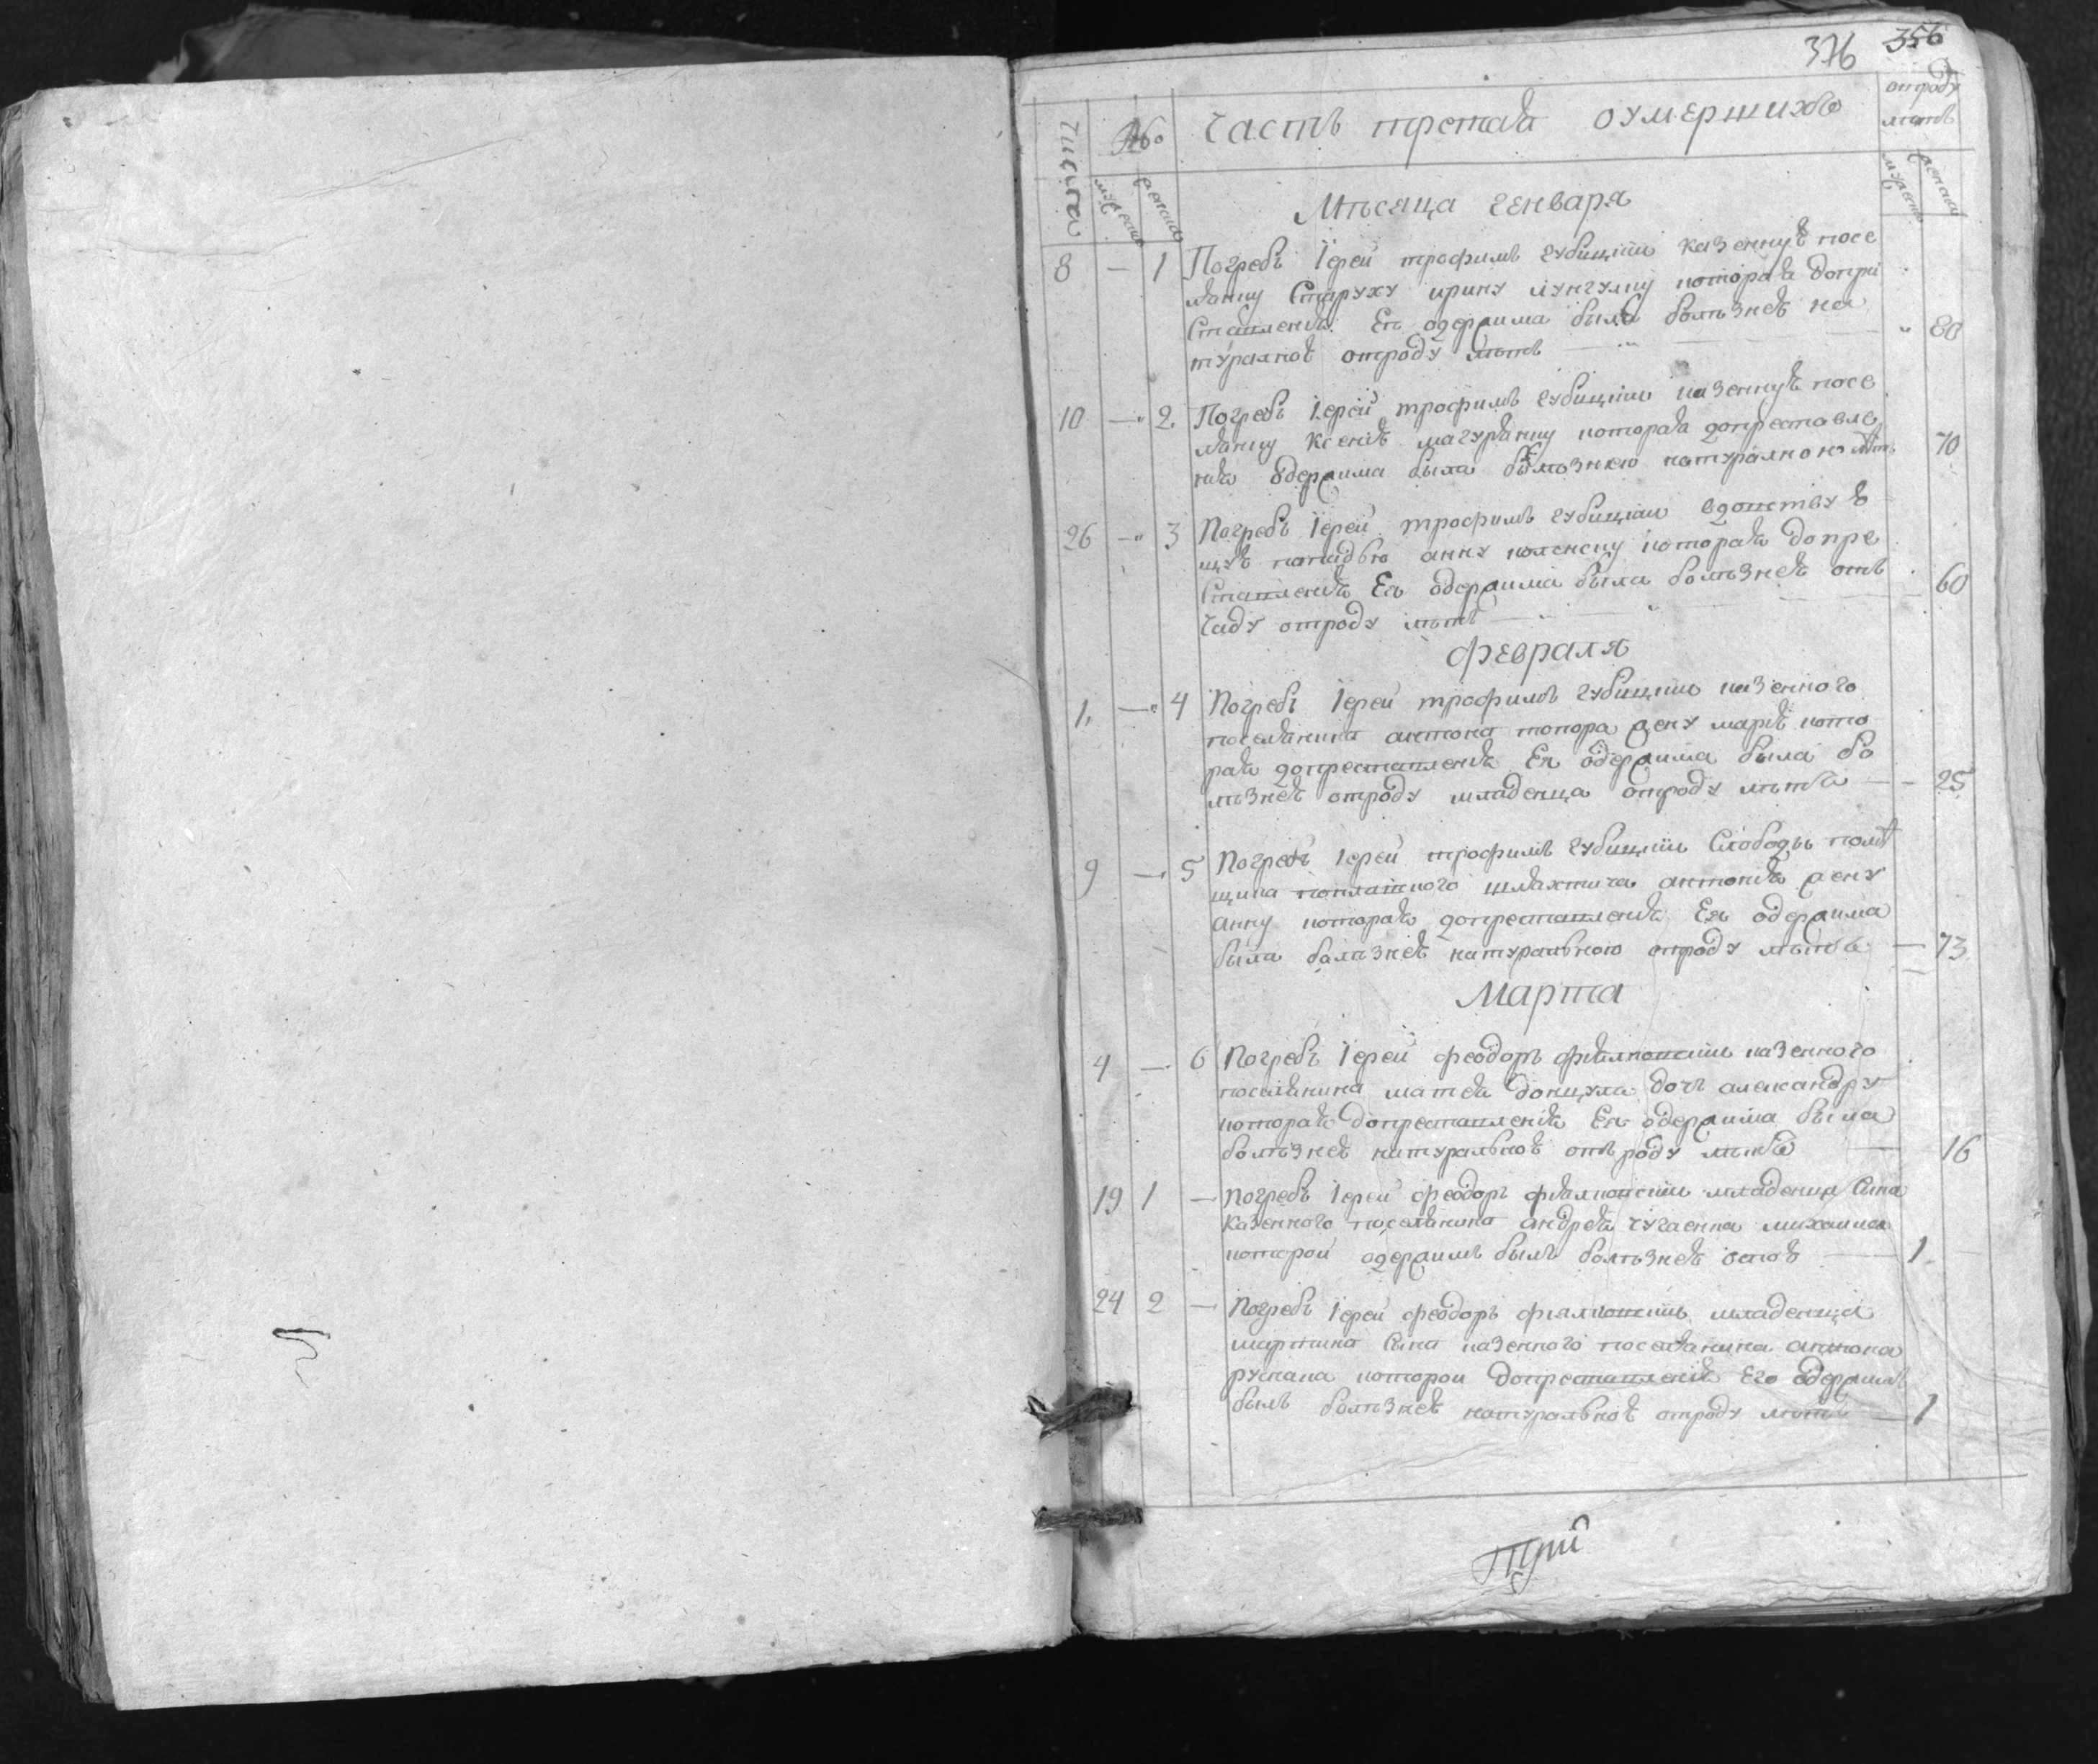 376 356
числа № Часть третая оумершихъ отроду летъ
мужеск женска мужеск женска
Мѣсяца генваря
8 — 1 Погребъ Іерей трофимъ губицкій казенную посе
лянку Старуху ирину которая допре
Ставления Ея одержима была болѣзнею на
туралною отроду летъ — 80
10 — 2. Погребъ Іерей трофимъ губицкій казенную посе
лянку Ксенію которая допреставле
ния одержима была болѣзнею натуралною летъ 70
26 — 3 Погребъ Іерей трофимъ губицкій вдовствую
щую попадью анну которая допре
Ставления Ея одержима была болѣзнею отъ
чаду отроду летъ — 60
февраля
1. — 4 Погребъ Іерей трофимъ губицкій казенного
поселянина антона топора жену марию кото
рая допреставления Ея одержима была бо
лѣзнею отроду младенца отроду летъ — 25
9 — 5 Погребъ Іерей трофимъ губицкій Слободы помѣ
щика шляхтича антония жену
анну которая допреставления Ея одержима
была болѣзнею натуральною отроду летъ — 73
Марта
4 — 6 Погребъ Іерей феодоръ фиялковскій казенного
поселянина матея донцула дочь александру
которая допреставления Ея одержима была
болѣзнею натуральною отъ роду летъ — 16
19 1 — Погребъ Іерей феодоръ фиялковскій младенца Сына
казенного поселянина андрея михаила
которой одержимъ былъ болѣзнею оспою — 1
24 2 — Погребъ Іерей феодоръ фиялковскій младенца
мартина Сына казенного поселянина антона
руснака которой допреставления Его одержимъ
былъ болѣзнею натуральною отроду летъ — 1